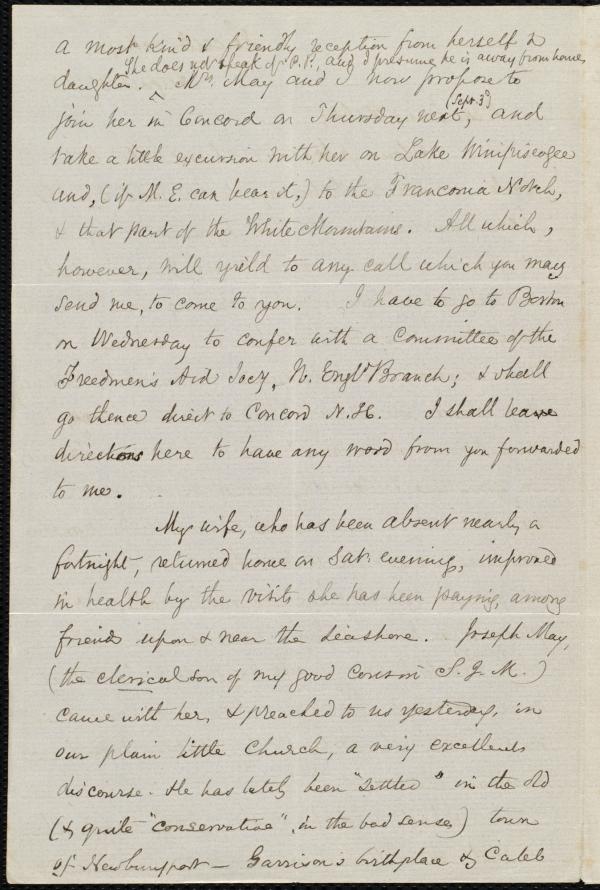 a most kind & friendly reception from herself &
She does not speak of P.P., and I presume he is away from home.
daughter. ^ Mrs. May and I now propose to
join her in Concord on Thursday next, (Sept. 3d) and
take a little excursion with her on Lake Winipiseogee
and, (if M. E. can bear it,) to the Franconia Notch,
& that part of the White Mountains. All which,
however, will yield to any call which you may
send me, to come to you. I have to go to Boston
on Wednesday to confer with a Committee of the
Freedmen's Aid Socy, N. Engld Branch; & shall
go thence direct to Concord N.H. I shall leave
directions here to have any word from you forwarded
to me.
My wife, who has been absent nearly a
fortnight, returned home on Sat. evening, improved
in health by the visits she has been paying, among
friends upon & near the seashore. Joseph May,
(the clerical son of my good cousin S. J. M.)
came with her, & preached to us yesterday, in
our plain little Church, a very excellent
discourse. He has lately been "settled" in the old
(& quite "conservative", in the bad sense) town
of Newburyport — Garrison's birthplace & Caleb